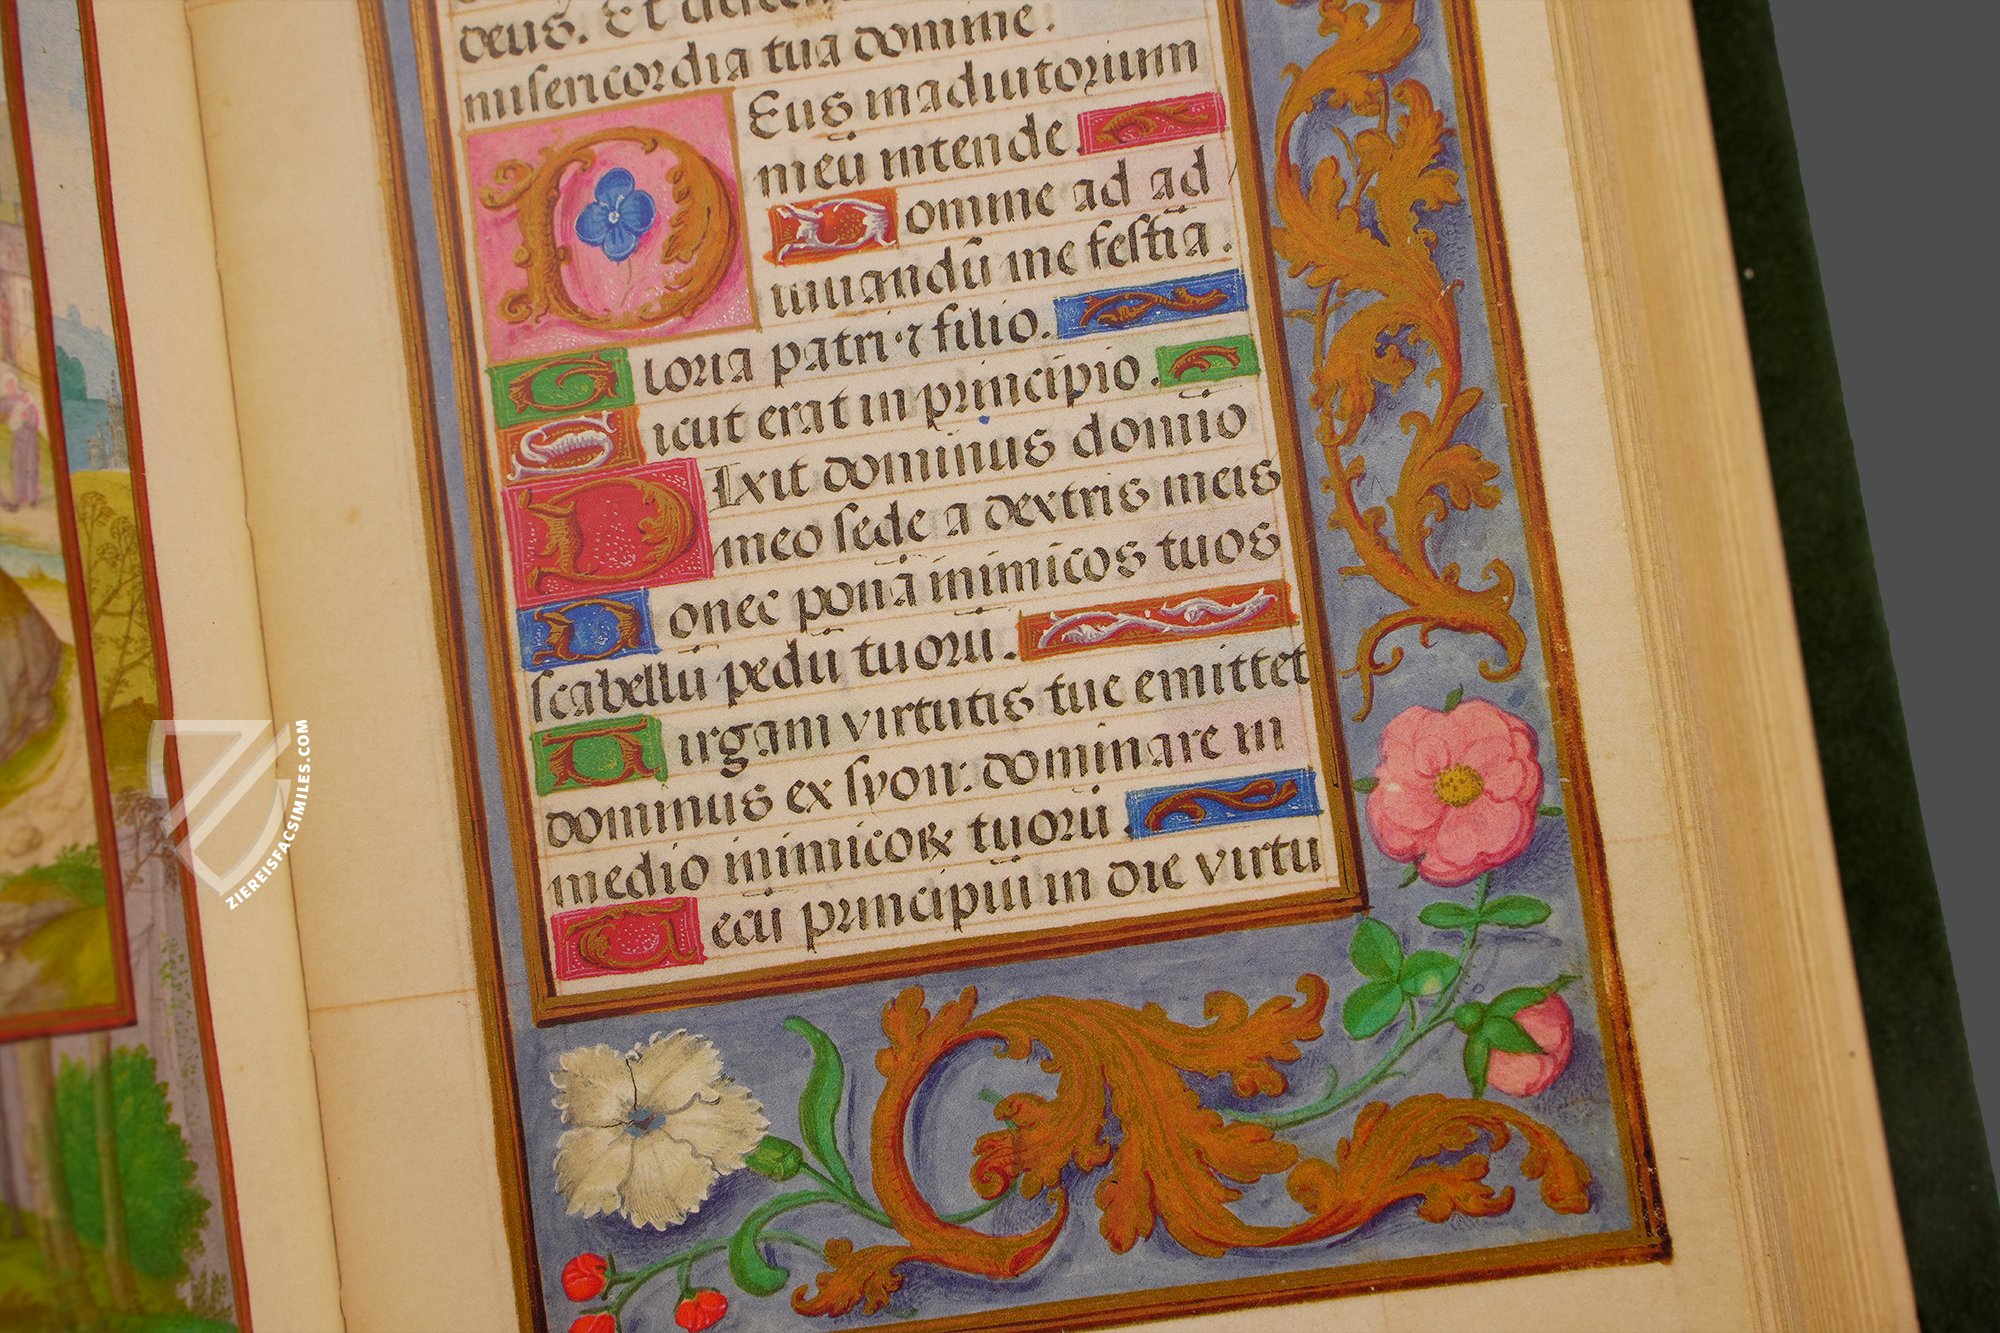 deus. Et
misericordia tua domine.
Deus in adiutorium
meū intende.
Domine ad ad
iuuandū me festiā.
Gloria patri ⁊ filio.
Sicut erat in principio.
Dixit dominus domīo
meo sede a dextris meis
Donec ponā inimicos tuos
scabellū pedū tuorū.
Uirgam virtutis tue emittet
dominus ex syon: dominare in
medio inimicoꝝ tuorū.
Tecū principiū in die virtu
ZIEREISFACSIMILES.COM